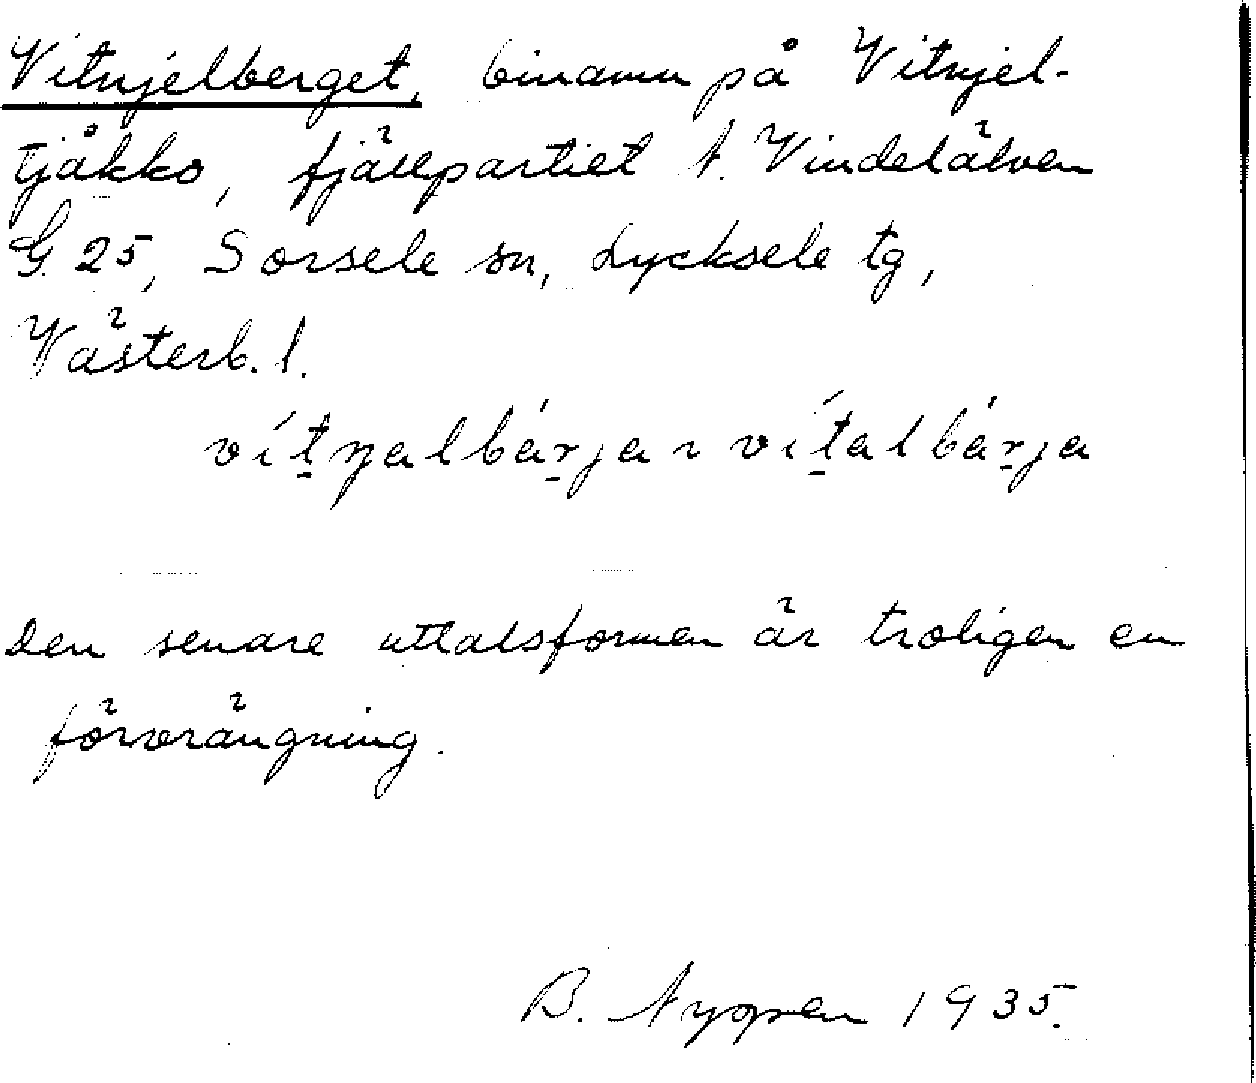 Vitnjelberget, binamn på Vitnjel-
tjåkko, fjällpartiet t. Vindelälven
G. 25, Sorsele sn, Lycksele tg,
Västerb. l.
vítnjalbárja ~ vítalbárja
Den senare uttalsformen är troligen en
förvrängning.
B. Nygren 1935.